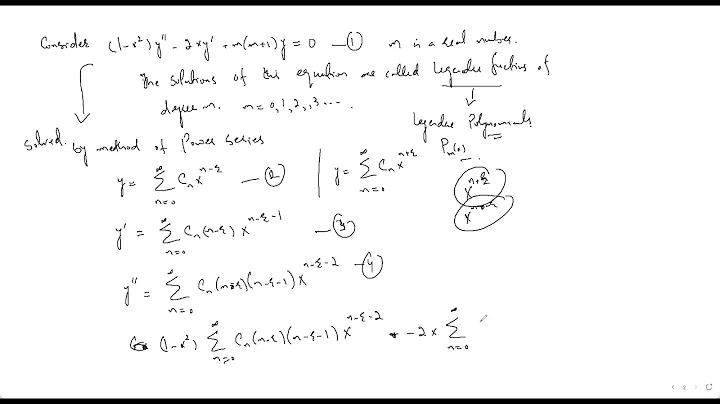 Consider (1-x²)y'' - 2xy' + n(n+1)y = 0 —① n is a real number.
The solutions of this equation are called Legendre functions of
degree n. n = 0, 1, 2, 3 ....
Legendre Polynomials
Pₙ(x)
Solved. by method of Power Series
y = ∑_{n=0}^{∞} Cₙ x^{n-r} —②
y = ∑_{n=0}^{∞} Cₙ x^{n+r}
x^{n+r}
y' = ∑_{n=0}^{∞} Cₙ (n-r) x^{n-r-1} —③
y'' = ∑_{n=0}^{∞} Cₙ (n-r)(n-r-1) x^{n-r-2} —④
(1-x²) ∑_{n=0}^{∞} Cₙ (n-r)(n-r-1) x^{n-r-2} - 2x ∑_{n=0}^{∞}
2